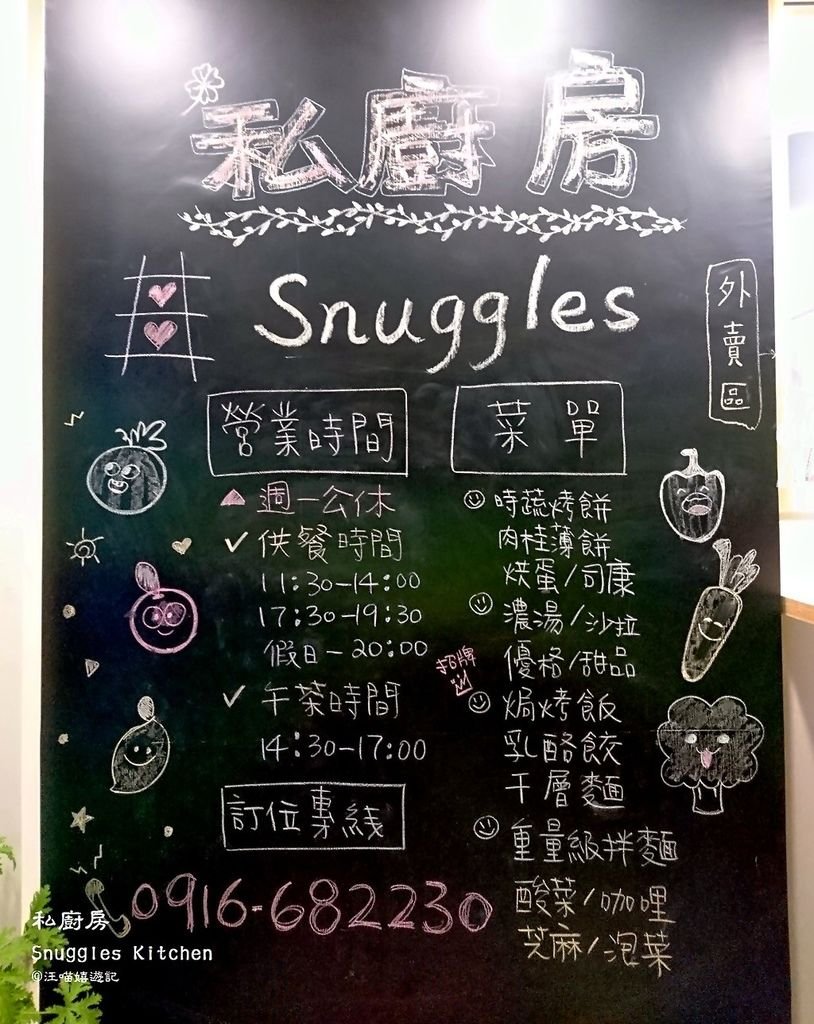 私廚房
Snuggles
外賣區
營業時間
週一公休
供餐時間
11:30-14:00
17:30-19:30
假日-20:00
午茶時間
14:30-17:00
訂位專線
0916-682230
菜單
時蔬烤餅
肉桂薄餅
烘蛋/司康
濃湯/沙拉
優格/甜品
招牌
焗烤飯
乳酪餃
千層麵
重量級拌麵
酸菜/咖哩
芝麻/泡菜
私廚房
Snuggles Kitchen
@汪喵嬉遊記